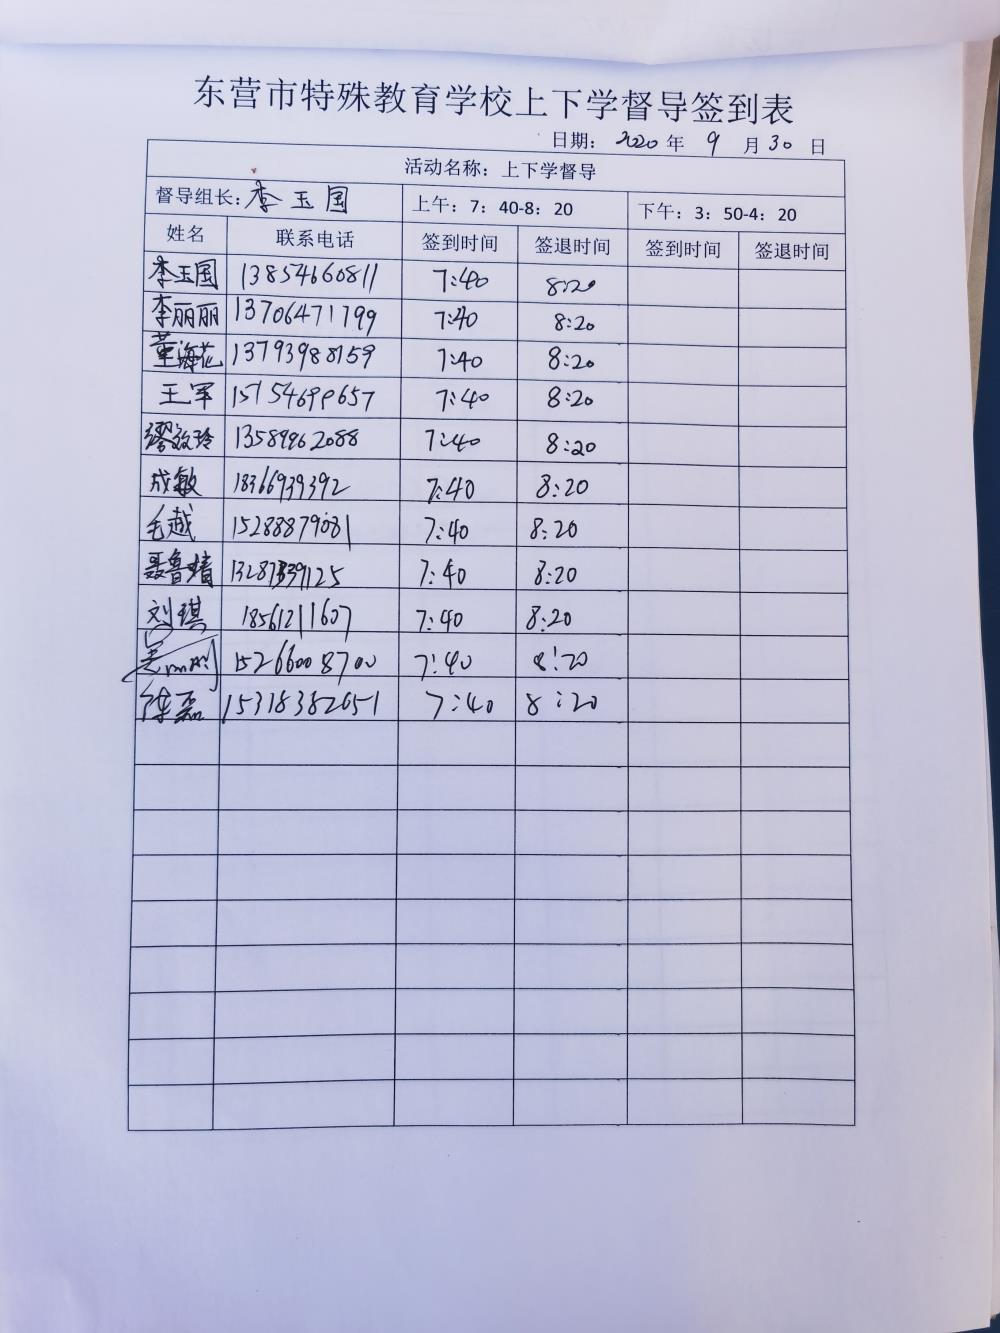 东营市特殊教育学校上下学督导签到表
日期： 2020 年 9 月 30 日
活动名称：上下学督导
督导组长：李玉国 上午：7：40-8：20 下午：3：50-4：20
姓名 联系电话 签到时间 签退时间 签到时间 签退时间
李玉国 13854660811 7:40 8:20
李丽丽 13706471799 7:40 8:20
董海花 13793988159 7:40 8:20
王军 15154699657 7:40 8:20
缪效玲 13589962088 7:40 8:20
成敏 18366939392 7:40 8:20
毛越 15288879081 7:40 8:20
聂鲁靖 7:40 8:20
刘琪 18561211607 7:40 8:20
15266008700 7:40 8:20
徐磊 15318382651 7:40 8:20